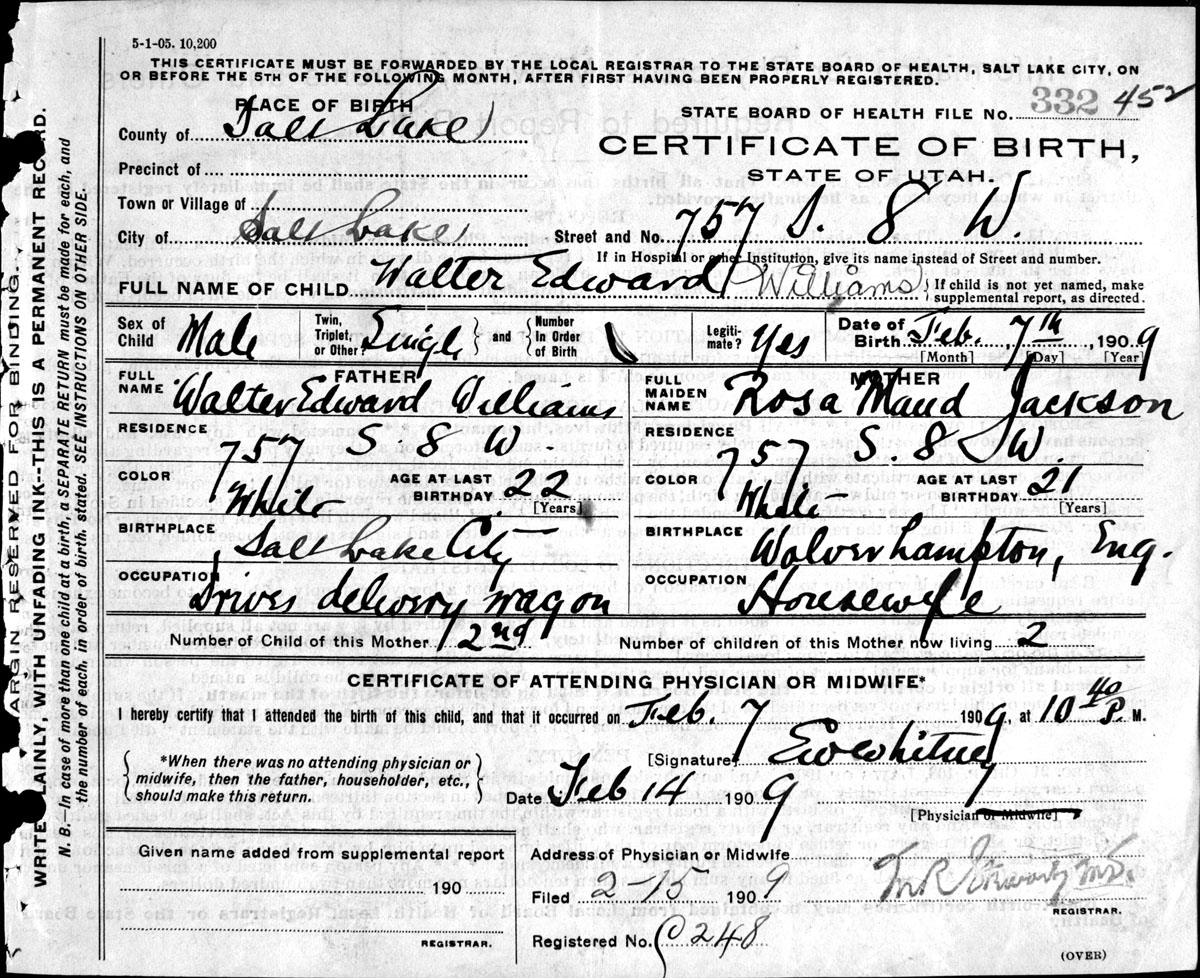 5-1-05. 10,200
THIS CERTIFICATE MUST BE FORWARDED BY THE LOCAL REGISTRAR TO THE STATE BOARD OF HEALTH, SALT LAKE CITY, ON
OR BEFORE THE 5TH OF THE FOLLOWING MONTH, AFTER FIRST HAVING BEEN PROPERLY REGISTERED.
PLACE OF BIRTH
STATE BOARD OF HEALTH FILE NO. 332 452
County of Salt Lake
CERTIFICATE OF BIRTH,
Precinct of
STATE OF UTAH.
Town or Village of
City of Salt Lake Street and No. 757 S. 8 W.
If in Hospital or other Institution, give its name instead of Street and number.
FULL NAME OF CHILD Walter Edward (Williams) { If child is not yet named, make
supplemental report, as directed.
Sex of Child Male Twin, Triplet, or Other? Single } and { Number In Order of Birth 1 Legiti- mate? Yes Date of Birth Feb. 7th, 1909
[Month] [Day] [Year]
FATHER MOTHER
FULL NAME Walter Edward Williams FULL MAIDEN NAME Rosa Maud Jackson
RESIDENCE 757 S. 8 W. RESIDENCE 757 S. 8 W.
COLOR White AGE AT LAST BIRTHDAY 22 [Years] COLOR White AGE AT LAST BIRTHDAY 21 [Years]
BIRTHPLACE Salt Lake City BIRTHPLACE Wolverhampton, Eng.
OCCUPATION Drives delivery wagon OCCUPATION Housewife
Number of Child of this Mother 2nd Number of children of this Mother now living 2
CERTIFICATE OF ATTENDING PHYSICIAN OR MIDWIFE*
I hereby certify that I attended the birth of this child, and that it occurred on Feb. 7 1909, at 10 40 P. M.
{ *When there was no attending physician or
midwife, then the father, householder, etc.,
should make this return. }
[Signature] E W Whitney
Date Feb 14 1909
[Physician or Midwife]
Given name added from supplemental report
190
REGISTRAR.
Address of Physician or Midwife
Filed 2-15 1909
M.D.
REGISTRAR.
Registered No. C 248
(OVER)
MARGIN RESERVED FOR BINDING.
WRITE PLAINLY, WITH UNFADING INK--THIS IS A PERMANENT RECORD.
N. B.--In case of more than one child at a birth, a SEPARATE RETURN must be made for each, and
the number of each, in order of birth, stated. SEE INSTRUCTIONS ON OTHER SIDE.